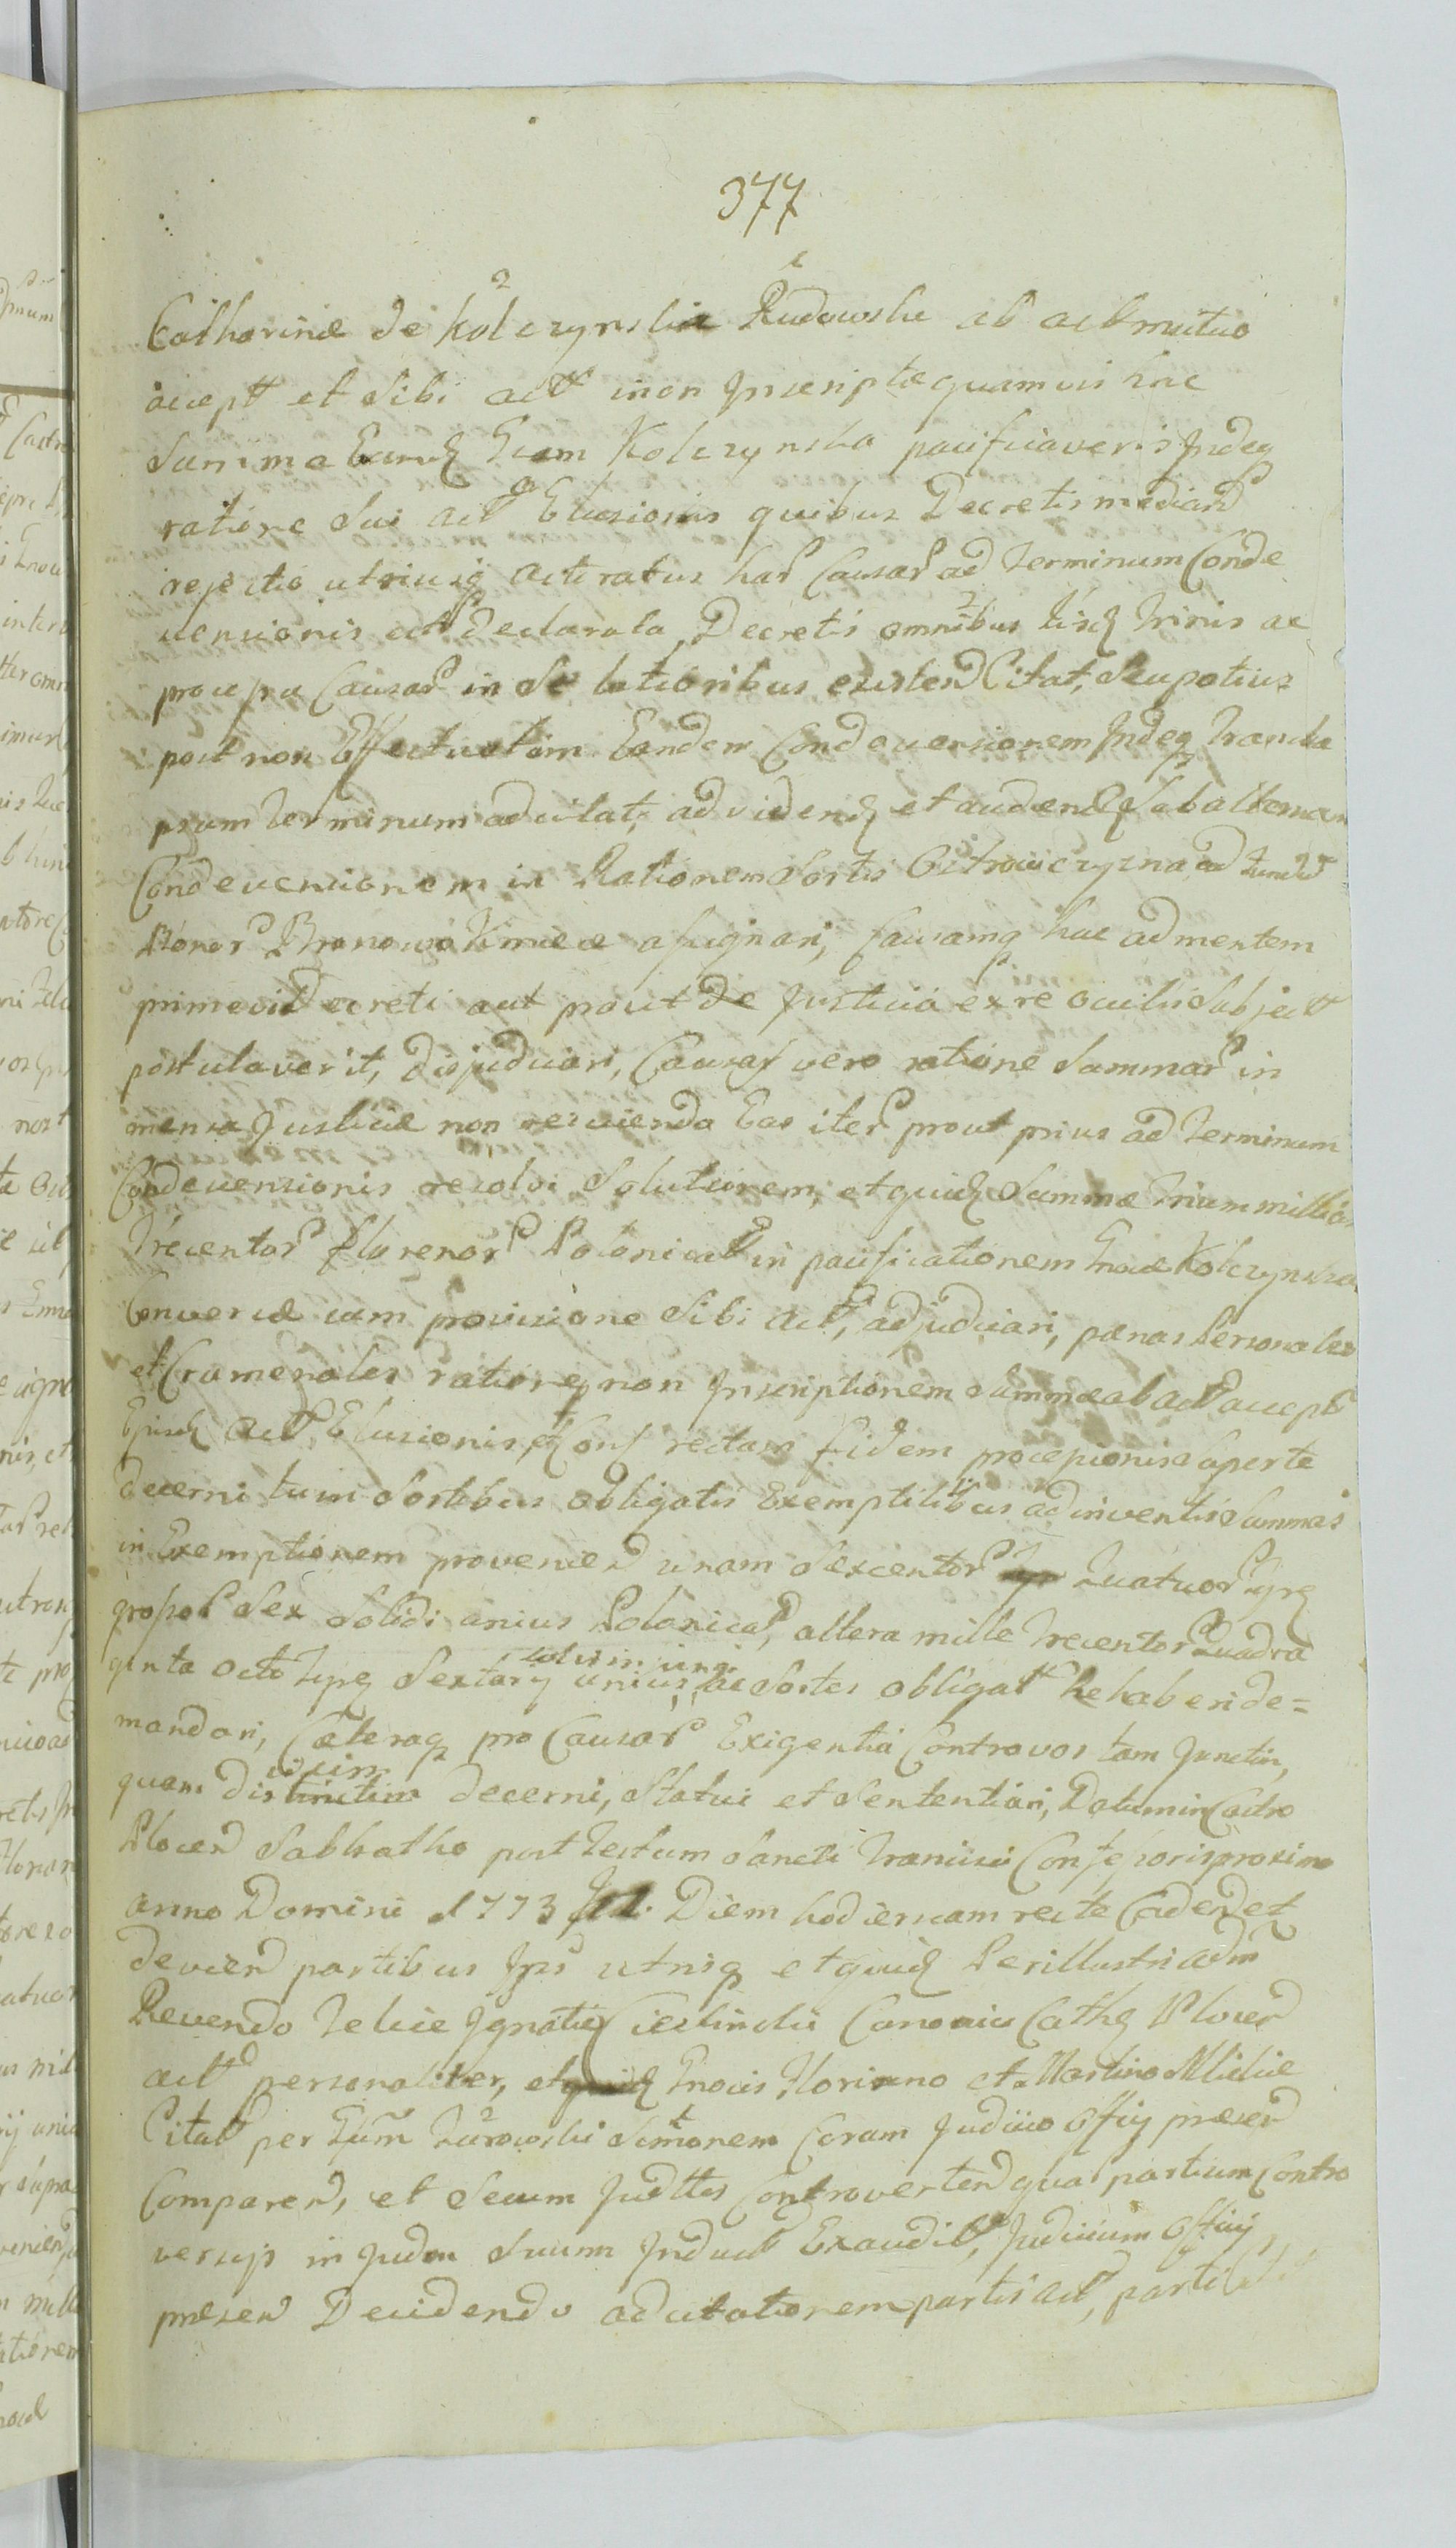 377
Catharinæ de Kolczynskie Rudowskie ab act mutuo
accept et Sibi act inon Inscriptæ quamvis hac
Summa Eand Gram Kolczynska pacificaveris Indeq
ratione Sui act Elusionis quibus Decretis mediand
rejectio utriusq actoratus har Causar ad terminum Conde
scensionis est declarata, Decretis omnibus tisd trinis ac
pro causar in Se latioribus existend Citat, Seu potius
post non Effectuatam Eandem Condescensionem Indeq
psum terminum adcitat, ad vidend et audiend Subalternam
Condescensionem in Rationem Sortis Ostrowczyzna ad
Bonor Bronowo Kmiece assignari, Causamq hac ad mentem
primevi Decreti aut prout de Justicia ex re oculis Subject
postulaverit, Disjudicari, Causas vero ratione Summar in
mensa Justiciæ non resecienda Eas iter prout prius ad terminum
Condescensionis resolvi Solutionem, et quid Summæ trium millia
trecentor florenor Polonical in pacificationem Gnosæ Kolczynska
Conversæ cum provisione Sibi act, adjudicari, pænas Personales
et Cramenales rationeq non Inscriptionem Summæ ab act accept
Ejusd act Elusionis, rectam fidem Superte
decerni tum Sortibus obligatis Exemptilibus ad inventis Summas
in Exemptionem proveniend unam Sexcentor Quatuor
grossor Sex Solidi unius Polonical, altera mille trecentor Quadra
ginta octo Sex unius, ac Sortes obligat rehaberi de=
mandari, Cæteraq pro Causar Exigentia Contra vos tam Junctim,
quam disjunctim decerni, Statui et Sententiari, Datum in Castro
Plocen Sabbatho post Festum Sancti Francisci Confessoris proximo
anno Domini 1773. Diem hodiernam recte Caden et
devenien partibus Ips utrisq et quid Perillustri adm
Revendo Felice Ignatio Cieslinski Canonico Cathe Plocen
act personaliter, et quid Gnosis Floriano et Martino Mlickie
Citat per Gnum Zurowski Simonem Coram Judicio Officij præsen
Comparen, et Secum Juditer Controverten quar partium Contro
versijs in Judm Suum Induct Exaudit, Judicium Officij
præsen Decidendo ad citationem partis act, parti